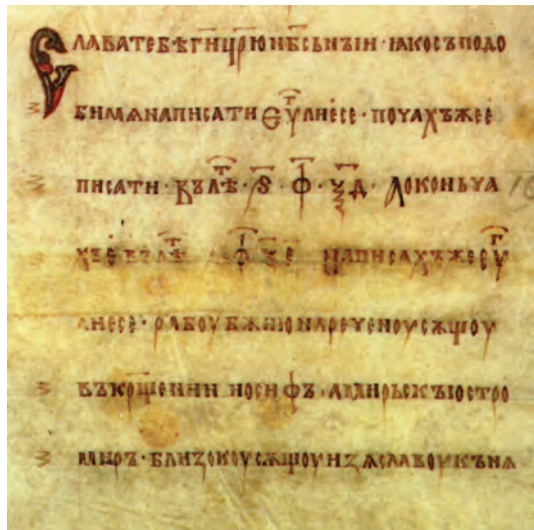 Слава тебѣ г҃и цр҃ю нб҃сьнꙑи · ꙗко съподо
би мѧ написати еѵⷢ҇лиѥ се · почахъ же ѥ
писати · въ лѣⷮ · ѕ҃ · ф҃ · ѯ҃д · а оконьча
хъ ѥ въ лѣⷮ · ф҃ ѯ҃е · написахъ же еѵⷢ҇
лиѥ се · рабоу бж҃ию нареченоу сѫщоу
въ кр҃щении иосифъ · а мирьскꙑ остро
миръ · близокоу сѫщоу изѧславоу кънѧ